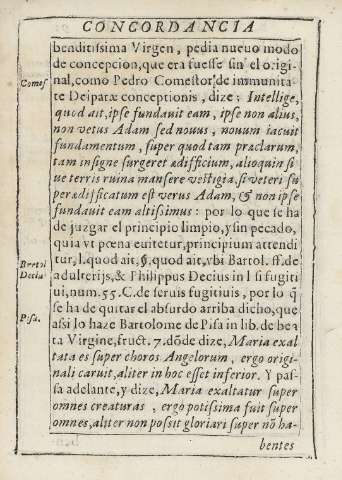 CONCORDANCIA
benditissima Virgen, pedia nueuo modo
de concepcion, que era fuesse sin el origi-
Comes
nal, como Pedro Comestor, de immunita-
te Deiparæ conceptionis, dize; Intellige,
quod ait, ipse fundauit eam, ipse non alius,
non vetus Adam sed nouus, nouum iacuit
fundamentum, super quod tam præclarum,
tam insigne surgeret ædificium, alioquin si
ue terris ruina mansere vestigia. si veteri su
peræedificatum est verus Adam, & non ipse
fundauit eam altissimus: por lo que se ha
de juzgar el principio limpio, y sin pecado,
quia vt pœna euitetur, principium attendi
tur, l. quod ait, §. quod ait, vbi Bartol. ff. de
Bartol
adulterijs, & Philippus Decius in l. si fugiti
Decia
ui, num. 55. C. de seruis fugitiuis, por lo q̃
se ha de quitar el absurdo arriba dicho, que
Pisa.
assi lo haze Bartolome de Pisa in lib. de bea
ta Virgine, fruct. 7. dõde dize, Maria exal
tata es super choros Angelorum, ergo origi-
nali caruit, aliter in hoc esset inferior. Y pas-
sa adelante, y dize, Maria exaltatur super
omnes creaturas, ergo potissima fuit super
omnes, aliter non possit gloriari super nõ ha-
bentes